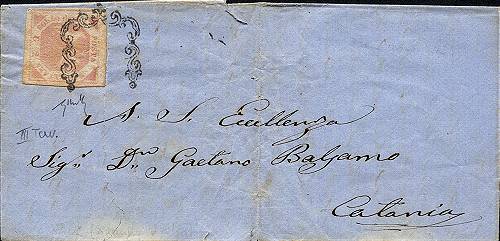 III Tav.
A. S. Eccellenza
Sig.r D.n Gaetano Balsamo
Catania